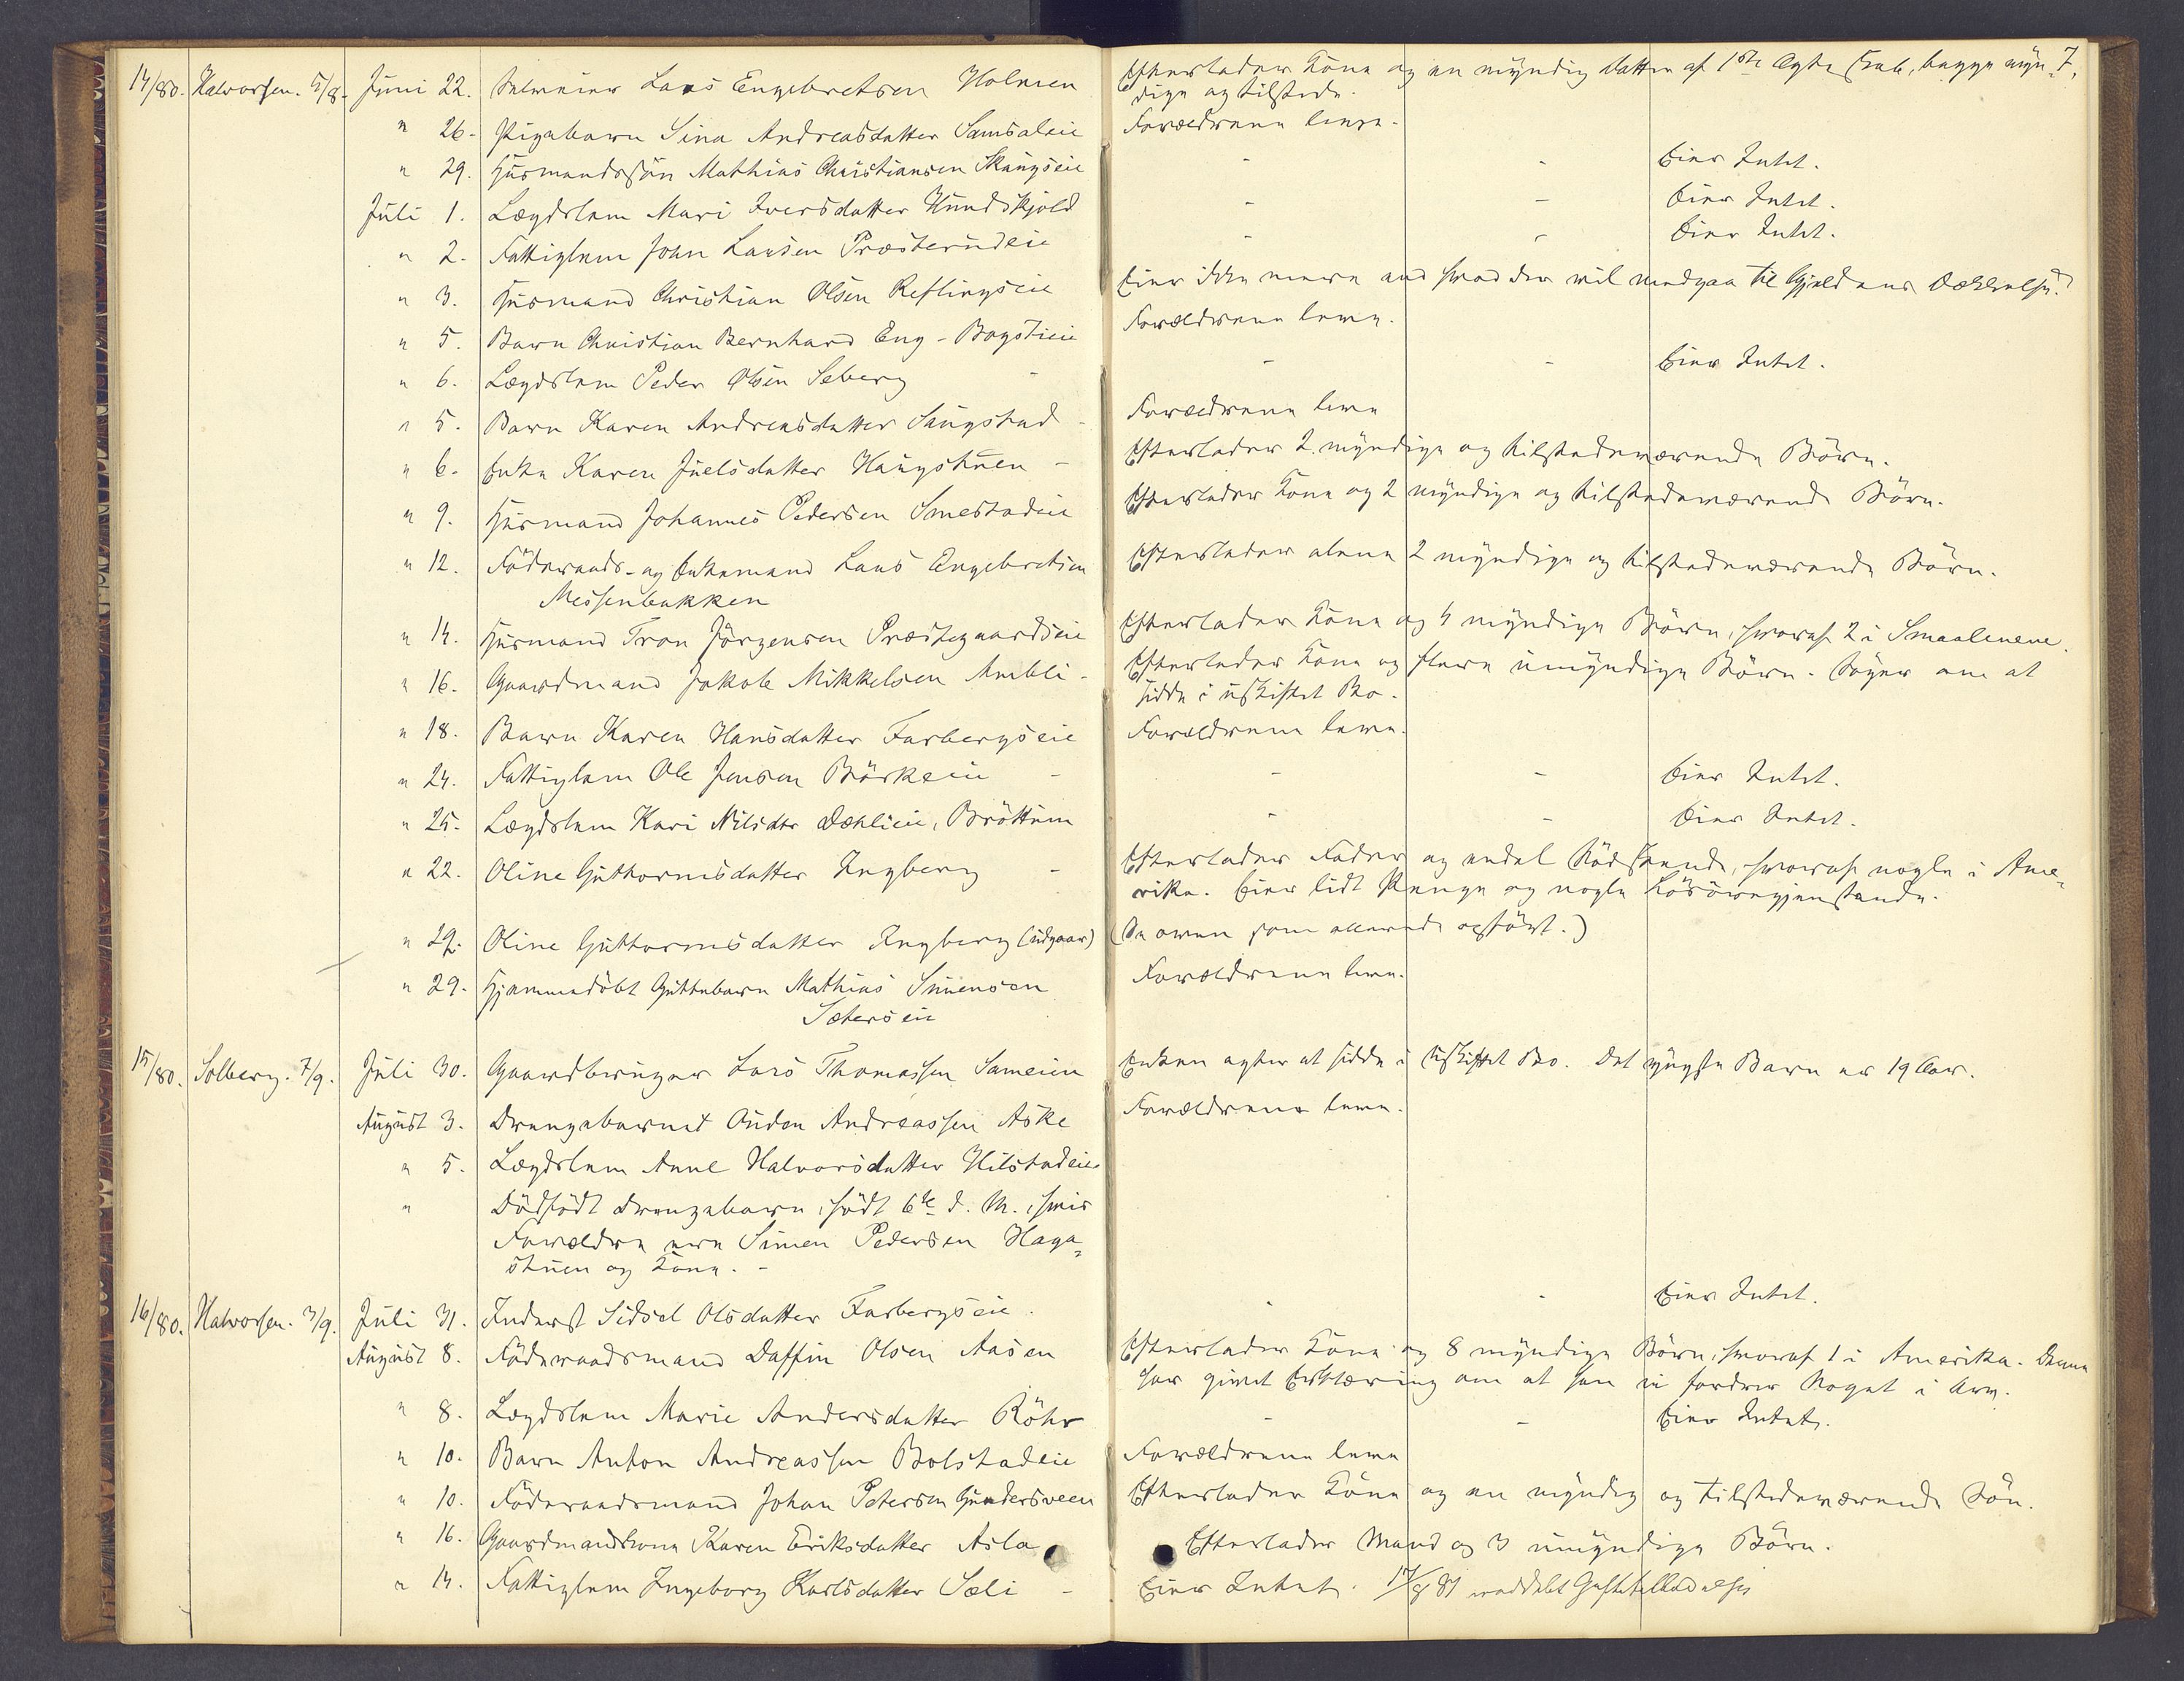 7.
14/80. Halvorsen. 5/8. Juni 22. Selveier Lars Engebretsen Holmen Efterlader Kone og en myndig Datter af 1ste Egteskab, begge myn-
dige og tilstede.
" 26. Pigebarn Sina Andreasdatter Samsaleie Forældrene leve.
" 29. Husmandssøn Mathias Christiansen Skaugseie - - Eier Intet.
Juli 1. Lægdslem Mari Iversdatter Hundskjold - - Eier Intet.
" 2. Fattiglem John Larsen Præsterudeie - - Eier Intet.
" 3. Husmand Christian Olsen Reflingseie Eier ikke mere end hvad der vil medgaa til Gjældens Dækkelse.
" 5. Barn Christian Bernhard Eng-Bogstieie Forældrene leve.
" 6. Lægdslem Peder Olsen Seberg - - - Eier Intet.
" 5. Barn Karen Andreasdatter Saugstad - Forældrene leve
" 6. Enke Karen Juelsdatter Haugstuen - Efterlader 2 myndige og tilstedeværende Börn.
" 9. Husmand Johannes Pedersen Smestadeie Efterlader Kone og 2 myndige og tilstedeværende Börn.
" 12. Föderaads- og Enkemand Lars Engebretsen Efterlader alene 2 myndige og tilstedeværende Börn.
Messenbakken
" 14. Husmand Tron Jörgensen Præstegaardseie Efterlader Kone og 4 myndige Börn, hvoraf 2 i Smaalenene.
" 16. Gaardmand Jakob Mikkelsen Ambli - Efterlader Kone og flere umyndige Börn. Söger om at
sidde i uskiftet Bo.
" 18. Barn Karen Hansdatter Farbergseie Forældrene leve.
" 24. Fattiglem Ole Jensen Börkeeie - - - Eier Intet.
" 25. Lægdslem Kari Nilsdtr Dæhlieie, Bröttum - - Eier Intet.
" 22. Oline Guthormsdatter Ingberg - Efterlader Fader og endel Södskende, hvoraf nogle i Ame-
rika. Eier lidt Penge og nogle Lösöregjenstande.
" 29. Oline Guttormsdatter Ingberg (udgaar) (Da oven som allerede opfört.)
" 29. Hjemmedöbt Guttebarn Mathias Simensen Forældrene leve.
Sætereie
15/80. Solberg. 7/9. Juli 30. Gaardbruger Lars Thomassen Sameien Enken agter at sidde i Uskiftet Bo. Det yngste Barn er 19 Aar.
August 3. Drengebarnet Audon Andreassen Aske Forældrene leve.
" 5. Lægdslem Anne Halvorsdatter Hilstadeie
" Dödfödt Drengebarn, födt 6te d. M., hvis
Forældre ere Simen Pedersen Haga-
stuen og Kone. -
16/80. Halvorsen. 3/9. Juli 31. Inderst Sidsel Olsdatter Farbergseie. - - Eier Intet.
August 8. Föderaadsmand Daffin Olsen Aasen Efterlader Kone og 8 myndige Börn, hvoraf 1 i Amerika. Denne
har givet Erklæring om at han ei fordrer Noget i Arv.
" 8. Lægdslem Marie Andersdatter Röhr - - Eier Intet.
" 10. Barn Anton Andreassen Bolstadeie Forældrene leve
" 10. Föderaadsmand Johan Petersen Gundersveen Efterlader Kone og en myndig og tilstedeværende Sön.
" 16. Gaardmandskone Karen Eriksdatter Asla Efterlader Mand og 3 umyndige Börn.
" 14. Fattiglem Ingeborg Karlsdatter Sæli - Eier Intet. 17/8 81 meddelt Giftetilladelse